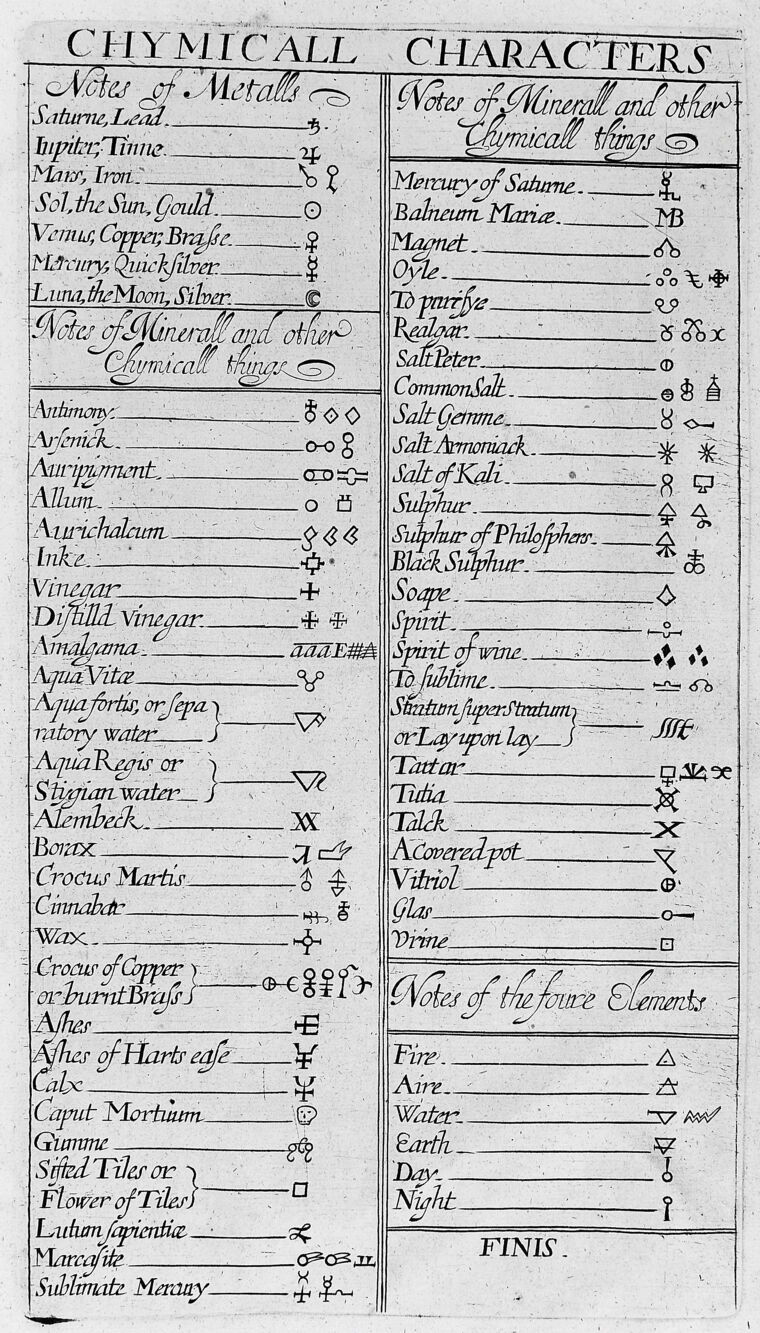 CHYMICALL CHARACTERS
Notes of Metalls
Saturne, Lead
♄
Iupiter, Tinne
♃
Mars, Iron
♂
Sol, the Sun, Gould
☉
Venus, Copper, Brasse
♀
Mercury, Quicksilver
☿
Luna, the Moon, Silver
☾
Notes of Minerall and other
Chymicall things
Antimony
Arsenick
Auripigment
Allum
Aurichalcum
Inke
Vinegar
Distilld Vinegar
Amalgama
aaa E
Aqua Vitæ
Aqua fortis, or sepa
ratory water
Aqua Regis or
Stigian water
Alembeck
Borax
Crocus Martis
Cinnabar
Wax
Crocus of Copper
or burnt Brass
Ashes
Ashes of Harts ease
Calx
Caput Mortuum
Gumme
Sifted Tiles or
Flower of Tiles
Lutum sapientiæ
Marcasite
Sublimate Mercury
Notes of Minerall and other
Chymicall things
Mercury of Saturne
Balneum Mariæ
MB
Magnet
Oyle
To purifye
Realgar
Salt Peter
Common Salt
Salt Gemme
Salt Armoniack
Salt of Kali
Sulphur
Sulphur of Philosphers
Black Sulphur
Soape
Spirit
Spirit of wine
To sublime
Stratum super Stratum
or Lay upon lay
Tartar
Tutia
Talck
A covered pot
Vitriol
Glas
Vrine
Notes of the foure Elements
Fire
Aire
Water
Earth
Day
Night
FINIS.